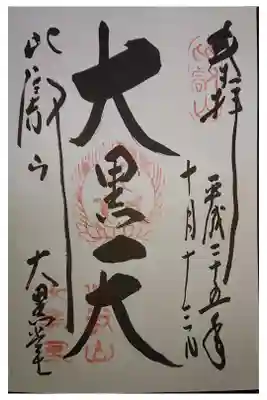 奉拝
平成二十五年
十月十二日
大黒天
比叡山
大黒堂